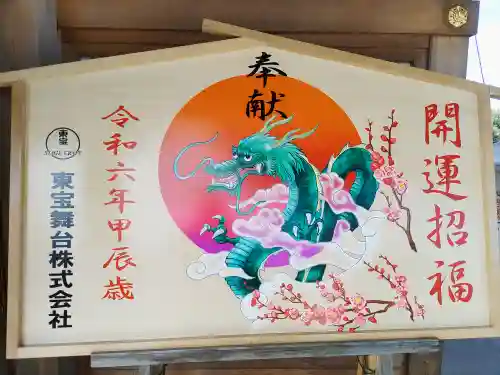 奉献
開運招福
令和六年甲辰歳
東宝
東宝舞台株式会社